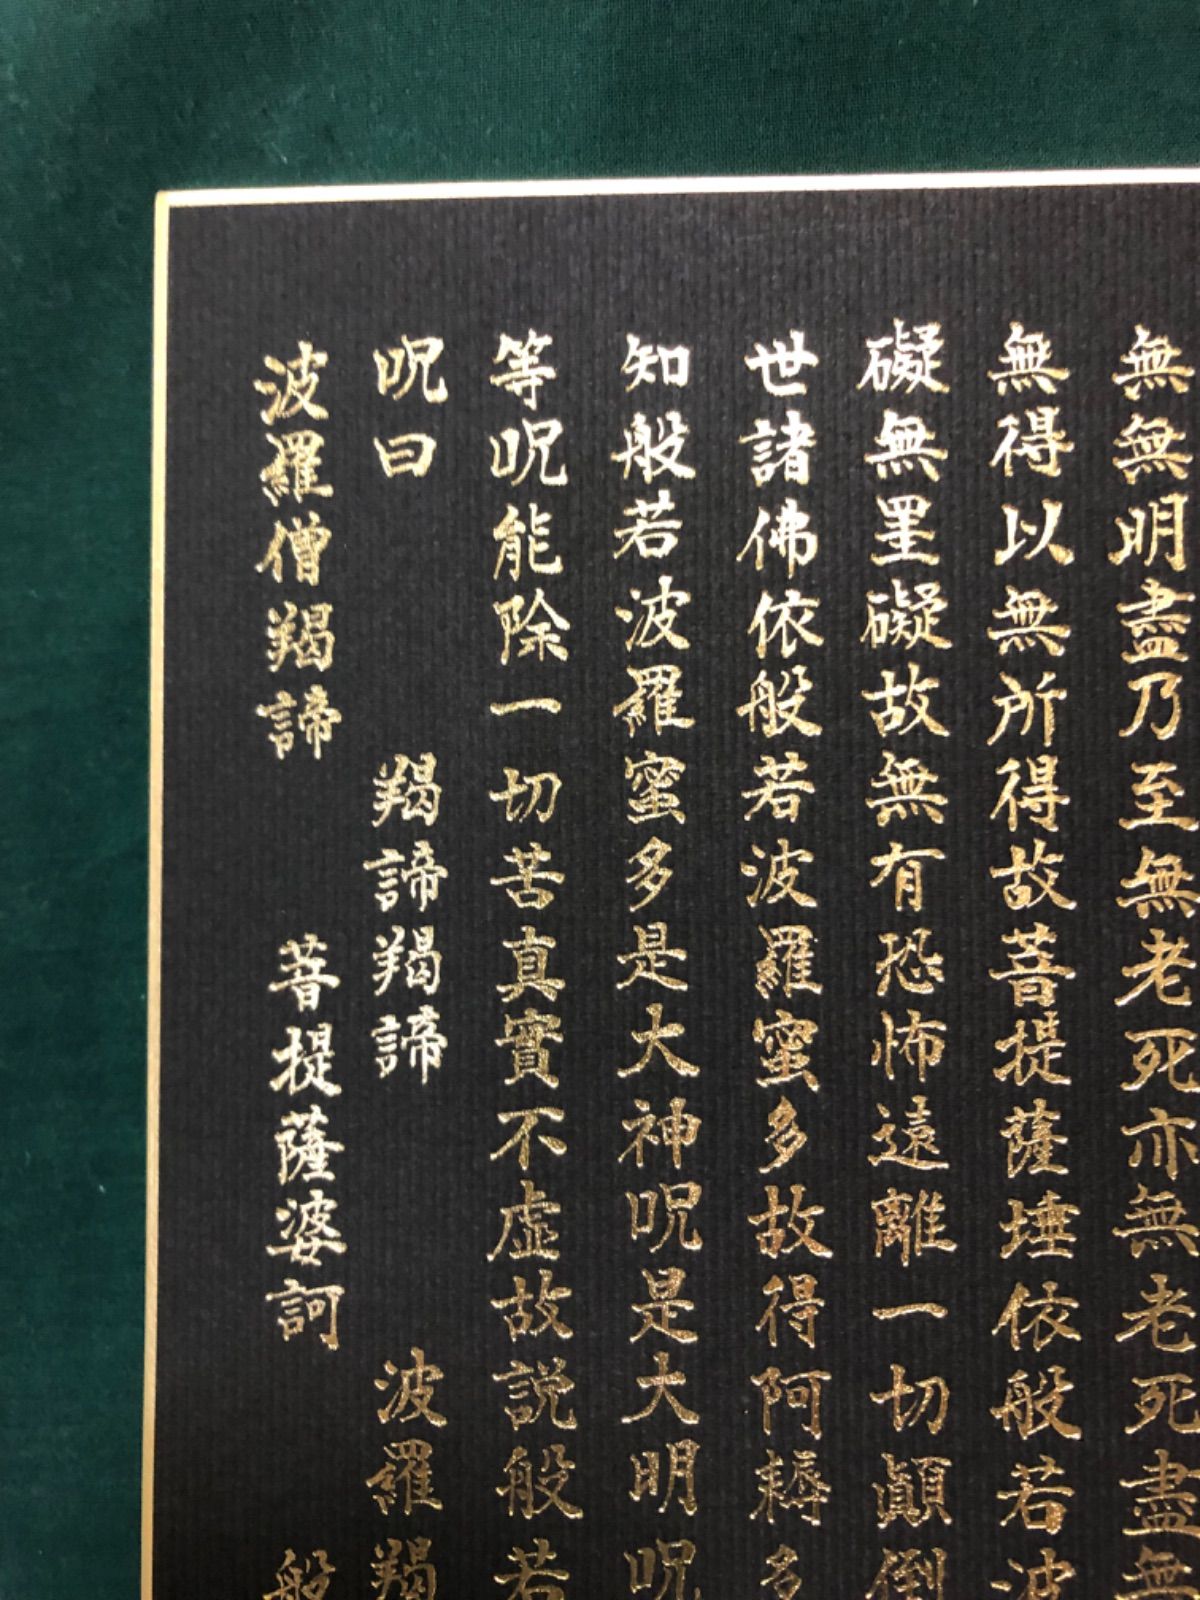 無無明盡乃至無老死亦無老死盡無
無得以無所得故菩提薩埵依般若波
礙無罣礙故無有恐怖遠離一切顛倒
世諸佛依般若波羅蜜多故得阿耨多
知般若波羅蜜多是大神呪是大明呪
等呪能除一切苦真實不虛故説般若
呪曰 羯諦羯諦 波羅羯
波羅僧羯諦 菩提薩婆訶 般